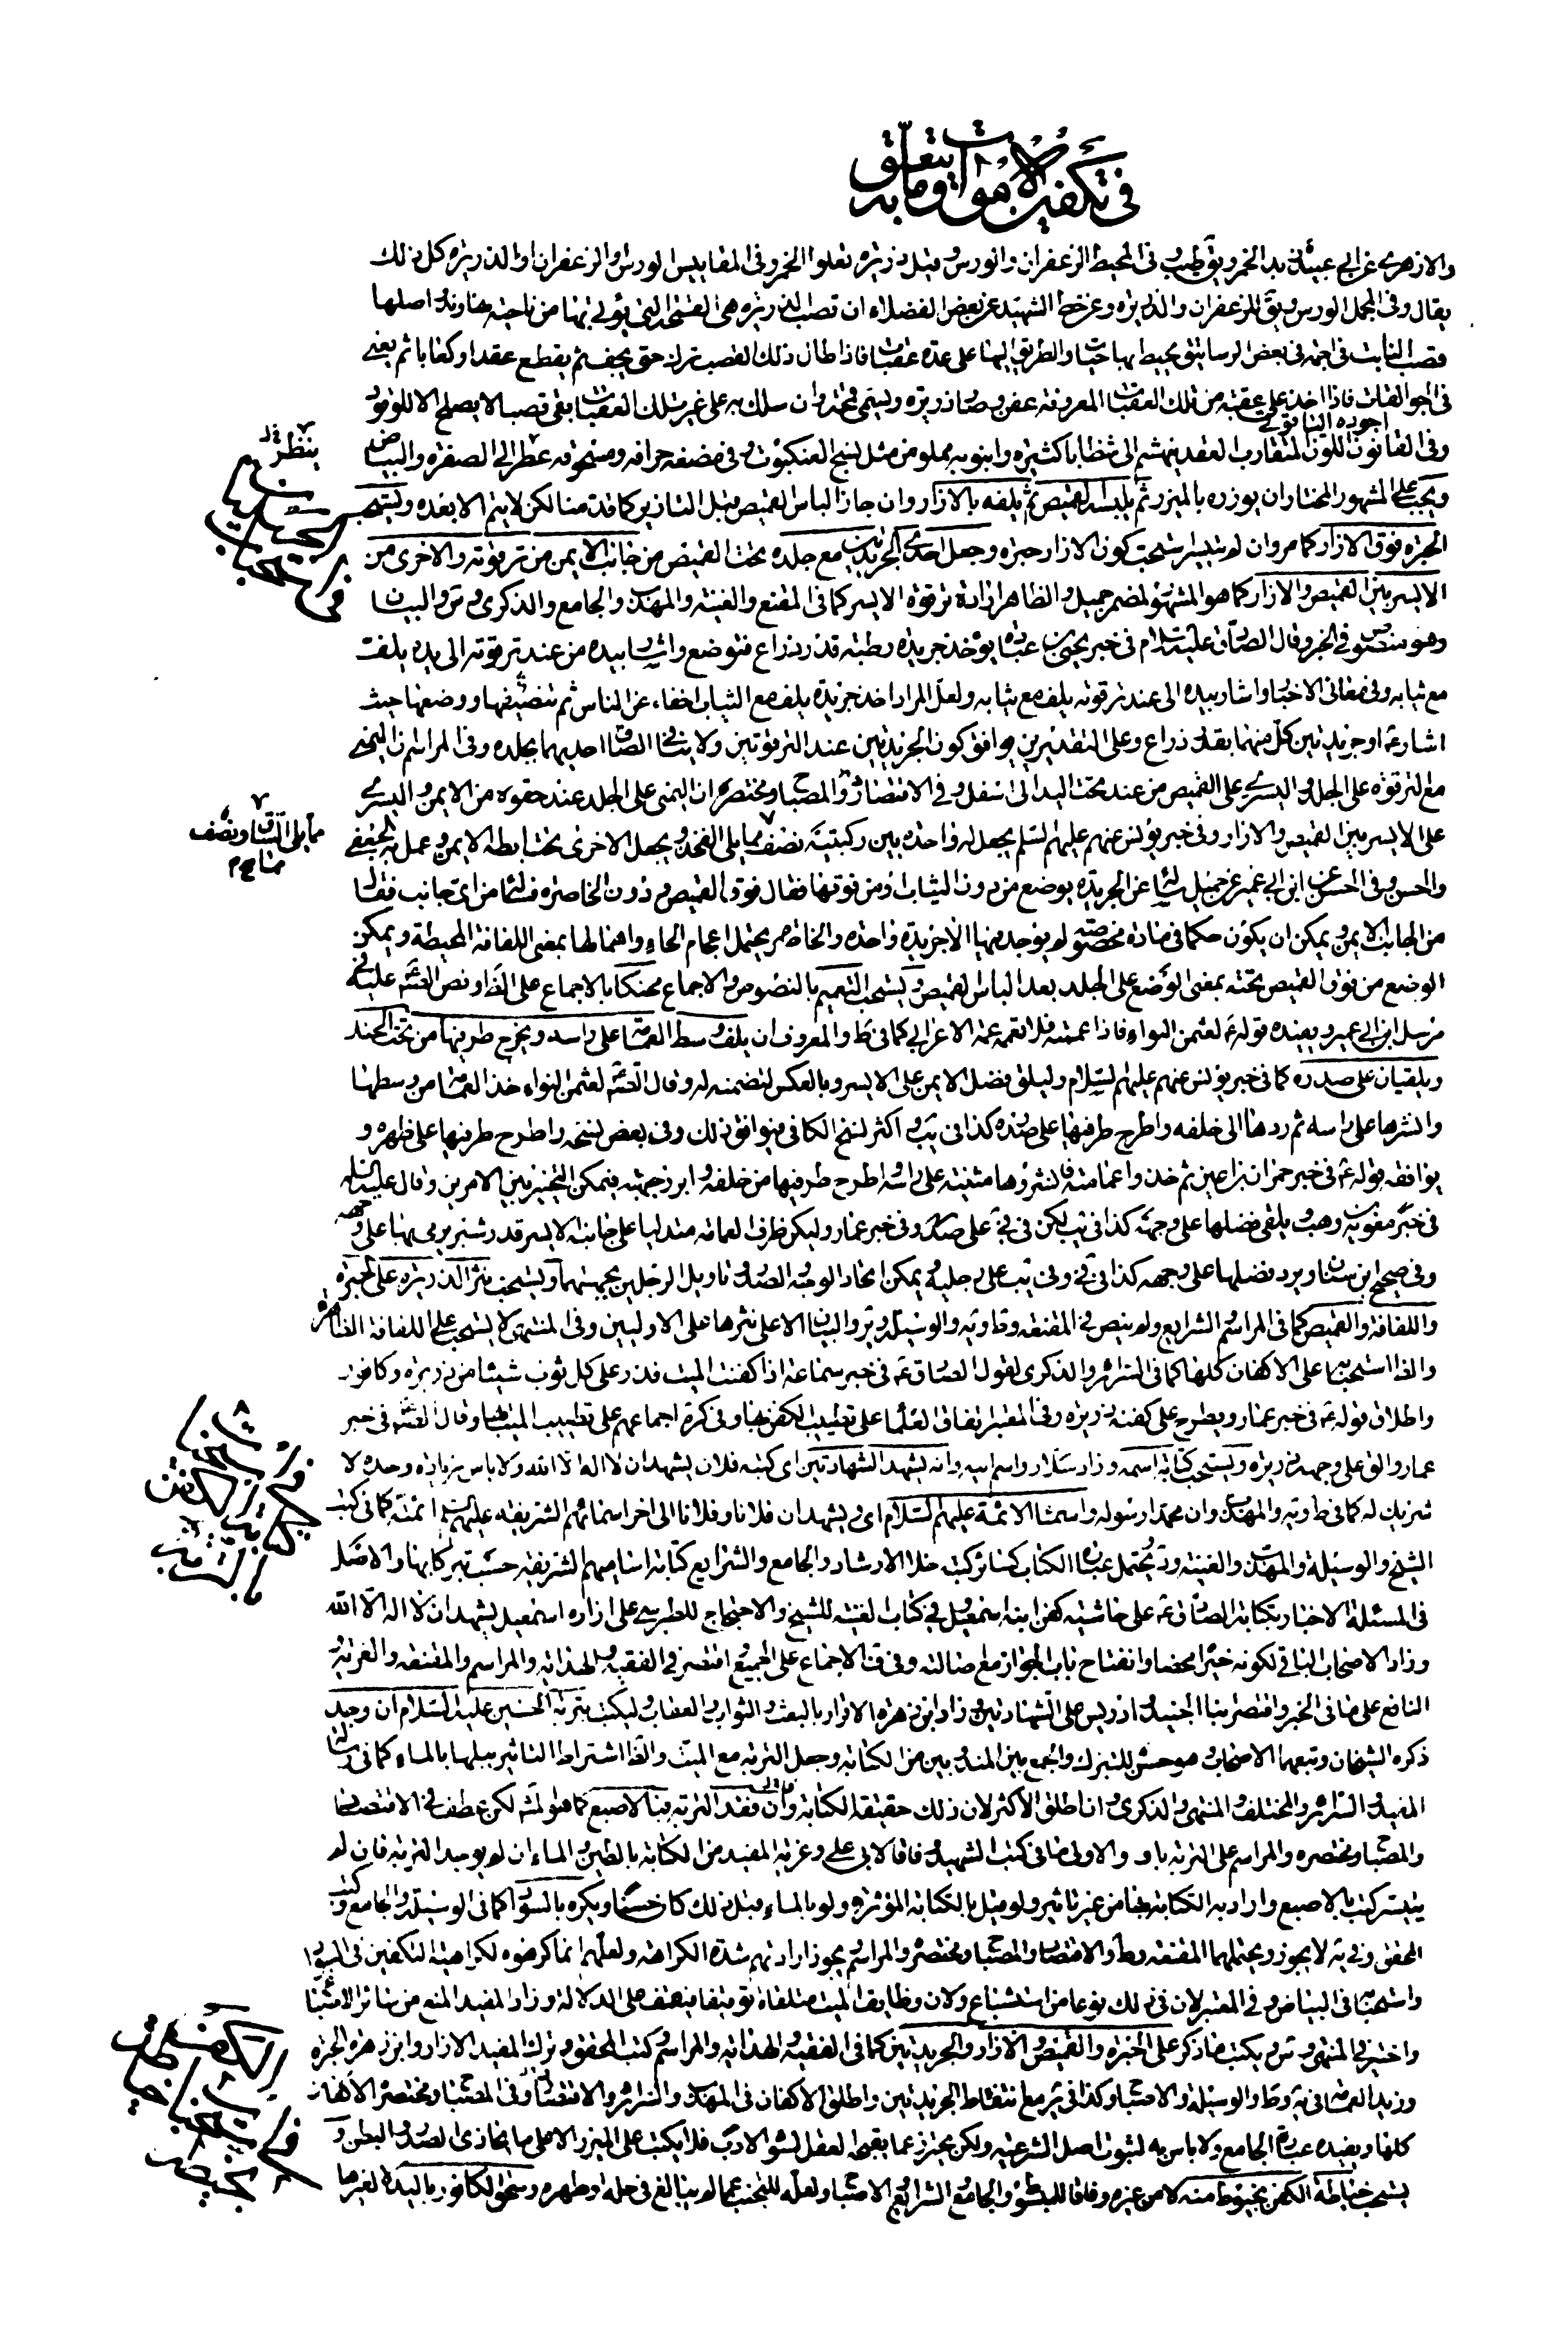 في تكفين الاموات وما يتعلق به
والازهري عن ابي عبيد في يد الخمر ويق طيب وفي المحيط الزعفران والورس وقيل ذريرة تعلوا الخمر وفي المقاييس الورس والزعفران او الذريرة كل ذلك
يقال وفي المجمل الورس ويق للزعفران والذريرة وعن خط الشهيد عن بعض الفضلاء ان قصب الذريرة هي القمحة التي يؤتى بها من ناحية نهاوند اصلها
قصب النابت في اجمة في بعض الرساتيق يحيط بها حيات والطريق اليها على عدة عقبات فاذا طال ذلك القصب ترك حتى يجف ثم يقطع عقدا وكعابا ثم يعبى
في الجوالقات فاذا اخذ على عقبة من تلك العقبات المعروفة عفن وصار ذريرة ويسمى قمحة وان سلك به على غير تلك العقبات بقى قصبا لا يصلح الا للوقود
وفي القانون اجوده الياقوتي اللون المتقارب العقد ينهشم الى شظايا كثيرة وانبوبه مملو من مثل نسج العنكبوت وفي مضغه حرافة ومسحوقه عطر الى الصفرة والبياض
ويجب على المشهور المختار ان يوزره بالميزر ثم يلبسه القميص ثم يلفه بالازار وان جاز الباس القميص قبل التازير كما قدمنا لكن لا يتم الا بعده ويستحب
الحبرة فوق الازار كما مر وان لم يتيسر استحب كون الازار حبرة وجعل احدى الجريدتين مع جلده تحت القميص من جانبه الايمن من ترقوته والاخرى من
الايسر بين القميص والازار كما هو المشهور لمضمر جميل والظاهر ارادة ترقوة الايسر كما في المقنع والغنية والمهذب والجامع والذكرى وس والبيان
وهو منصوص في الخبر وقال الصادق عليه السلام في خبر يحيى بن عبادة يؤخذ جريدة رطبة قدر ذراع فتوضع واشار بيده من عند ترقوته الى يده يلف
مع ثيابه وفي معاني الاخبار واشار بيده الى عند ترقوته يلف مع ثيابه ولعل المراد اخذ جريدة يلف مع الثياب اخفاء عن الناس ثم تنصيفها ووضعها حيث
اشار ع او جريدتين كل منهما بقدر ذراع وعلى التقديرين يوافق كون الجريدتين عند الترقوتين ولا ينافي الصاق احديهما بجلده وفي المراسم اليمنى
مع الترقوة على الجلد واليسرى على القميص من عند تحت اليد الى اسفل وفي الاقتصاد والمصباح ومختصره ان اليمنى على الجلد عند حقوه من الايمن واليسرى
على الايسر بين القميص والازار وفي خبر يونس عنهم عليهم السلم يجعل له واحدة بين ركبتيه نصف مما يلي الفخذ ويجعل الاخرى تحت ابطه الايمن وعمل به الجعفي
والحسن وفي الحسن عن ابن ابي عمير عن جميل سئل عن الجريدة يوضع من دون الثياب او من فوقها فقال فوق القميص ودون الخاصرة فسئل من اي جانب فقال
من الجانب الايمن ويمكن ان يكون حكما في مادة مخصوصة لم يوجد فيها الا جريدة واحدة والخاصرة يحتمل اعجام الخاء واهمالها بمعنى اللفافة المحيطة ويمكن
الوضع من فوق القميص تحته بمعنى الوضع على الجلد بعد الباس القميص ويستحب التعميم بالنصوص والاجماع محنكا بالاجماع على الظ ونص الصادق عليه في
مرسل ابن ابي عمير ويعضده قوله ع لعثمن النواء فاذا عممته فلا تعممه عمة الاعرابي كما في ط والمعروف ان يلف وسط العمامة على راسه ويخرج طرفيها من تحت الحنك
ويلقيان على صدره كما في خبر يونس عنهم عليهم السلام وليلق فضل الايمن على الايسر وبالعكس لتضمنه له وقال الصادق لعثمن النواء خذ العمامة من وسطها
وانشرها على راسه ثم ردها الى خلفه واطرح طرفيها على صدره كذا في يب واكثر نسخ الكافي فيوافق ذلك وفي بعض نسخه واطرح طرفيها على ظهره و
يوافقه قوله ع في خبر حمران بن اعين ثم خذوا عمامته فانشروها مثنية على راسه واطرح طرفيها من خلفه وابرز جبهته فيمكن التخيير بين الامرين وقال عليه السلام
في خبر معوية بن وهب ويلقى فضلها على وجهه كذا في يب لكن في في على صدره وفي خبر عمار وليكن طرف العمامة متدليا على جانبه الايسر قدر شبر يرمي بها على وجهه
وفي صحيح ابن سنان ويرد فضلها على وجهه كذا في في وفي يب على رجليه ويمكن اتحاد الوجه الصدر وتاويل الرجلين بجهتهما ويستحب نثر الذريرة على الحبرة
واللفافة والقميص كما في المراسم الشرايع ولم ينص في المقنعة والوسيلة والبيان الا على نثرها على الاوليين وفي المنتهى لا يستحب على اللفافة الظاهرة
والظ استحبابها على الاكفان كلها كما في السرائر والذكرى لقول الصادق ع في خبر سماعة اذا كفنت الميت فذر على كل ثوب شيئا من ذريرة وكافور
واطلاق قوله ع في خبر عمار ويطرح على كفنه ذريرة وفي المعتبر اتفاق العلماء على تطييب الكفن بها وفي كرة اجماعهم على تطييب الميت بها وقال الصادق في خبر
عمار والق على وجهه ذريرة ويستحب كتابة اسمه وزاد سلار واسم ابيه وانه يشهد الشهادتين اي كتبه فلان يشهد ان لا اله الا الله ولا باس بزيادة وحده لا
شريك له كما في ط وية والمهذب وان محمدا رسوله واسماء الائمة عليهم السلام اي ويشهد ان فلانا وفلانا الى اخر اسمائهم الشريفة عليهم السلام ائمته كما في كتب
الشيخ والوسيلة والمهذب والغنية ويحتمل عبارة الكتاب كسائر كتبه خلا الارشاد والجامع والشرايع كتابة اساميهم الشريفة حسب تبركا بها والاصل
في المسئلة الاخبار بكتابة الصادق ع على حاشية كفن ابنه اسمعيل وفي كتاب الغيبة للشيخ والاحتجاج للطبرسي على ازاره اسمعيل يشهد ان لا اله الا الله
وزاد الاصحاب الباقي لكونه خيرا محضا وانفتاح باب الجواز مع اصالته وفي ف الاجماع على الجميع اقتصر في الفقيه والهداية والمراسم والمقنعة والعزية
النافع على ما في الخبر واقتصر بنا الجنيد وادريس على الشهادتين وزاد ابن زهرة الاقرار بالبعث والثواب والعقاب وليكتب بتربة الحسين عليه السلام ان وجد
ذكره الشيخان وتبعهما الاصحاب وهو حسن للتبرك والجمع بين المندوبين من الكتابة وجعل التربة مع الميت والظ اشتراط التاثير ببلها بالماء كما في رسالة
المفيد والسرائر والمختلف والمنتهى والذكرى وان اطلق الاكثر لان ذلك حقيقة الكتابة وان فقدت التربة فبالاصبع كما هو لمش لكن عطف في الاقتصاد
والمصباح ومختصره والمراسم على التربة باو والاولى ما في كتب الشهيد وفاقا لابي علي وعزية المفيد من الكتابة بالطين والماء ان لم يوجد التربة فان لم
يتيسر كتب بالاصبع واراد به الكتابة بها من غير تاثير ولو قيل بالكتابة المؤثرة ولو بالماء قبل ذلك كان حسنا ويكره بالسواد كما في الوسيلة والجامع وكتب
المحقق وفي ية لا يجوز ويحتملهما المقنعة وط والاقتصاد والمصباح ومختصره والمراسم يجوز ارادتهم شدة الكراهة ولعلهم انما كرهوه لكراهية التكفين في السواد
واستحبابه في البياض وفي المعتبر لان في ذلك نوعا من استبشاع ولان وظايف الميت متلقاة توقيفا فيقف على الدلالة وزاد المفيد المنع من سائر الاصباغ
واختير في المنتهى وس ويكتب ما ذكر على الحبرة والقميص والازار والجريدتين كما في الفقيه والهداية والمراسم وكتب المحقق وترك المفيد الازار وابن زهرة الحبرة
وزيد العمامة في ية وط والوسيلة والاصباح وكذا في ير مع اسقاط الجريدتين واطلق الاكفان في المهذب والسرائر والاقتصاد وفي المصباح ومختصره الاكفان
كلها ويفيده عبارة الجامع ولا باس به لثبوت اصل الشرعية ولكن يحترز عما يقبحه العقل لسوء الادب فلا يكتب على الميزر الا على ما يحاذى الصدر والبطن و
يستحب خياطة الكفن بخيوط منه لا من غيره وفاقا للمبسوط والجامع الشرائع والاصباح ولعله للتجنب عما لم يبالغ في حله وطهره وسحق الكافور باليد لا بغيرها
ينظر قد
فى استحباب الحبرة
مما يلي الساق ونصف
في استحباب كتابة
في استحباب